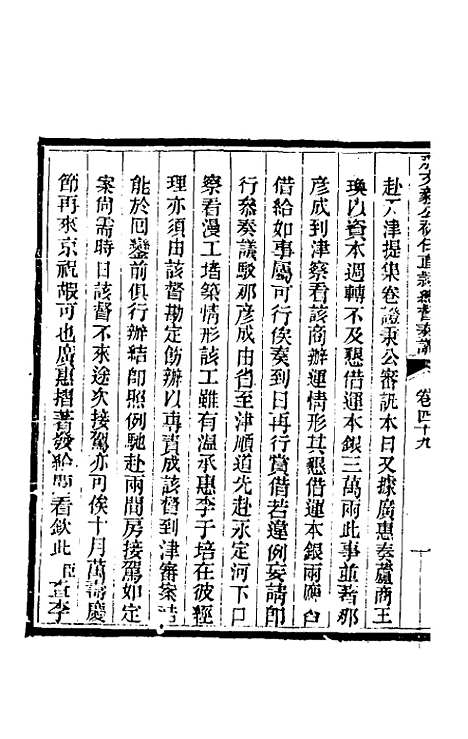 那文毅公初任直隸總督奏議 卷四十九
赴天津提集卷證秉公審訊本日又據廣惠奏蘆商王
瑍以資本週轉不及懇借運本銀三萬兩此事並著那
彥成到津察看該商辦運情形其懇借運本銀兩應否
借給如事屬可行俟奏到日再行賞借若違例妄請即
行參奏議駁那彥成由省至津順道先赴永定河下口
察看漫工堵築情形該工雖有溫承惠李于培在彼經
理亦須由該督勘定飭辦以專責成該督到津審案詰
能於回鑾前俱行辦結即照例馳赴兩間房接駕如定
案尚需時日該督不來途次接駕亦可俟十月萬壽慶
節再來京祝嘏可也廣惠摺著發給閱看欽此 臣查李